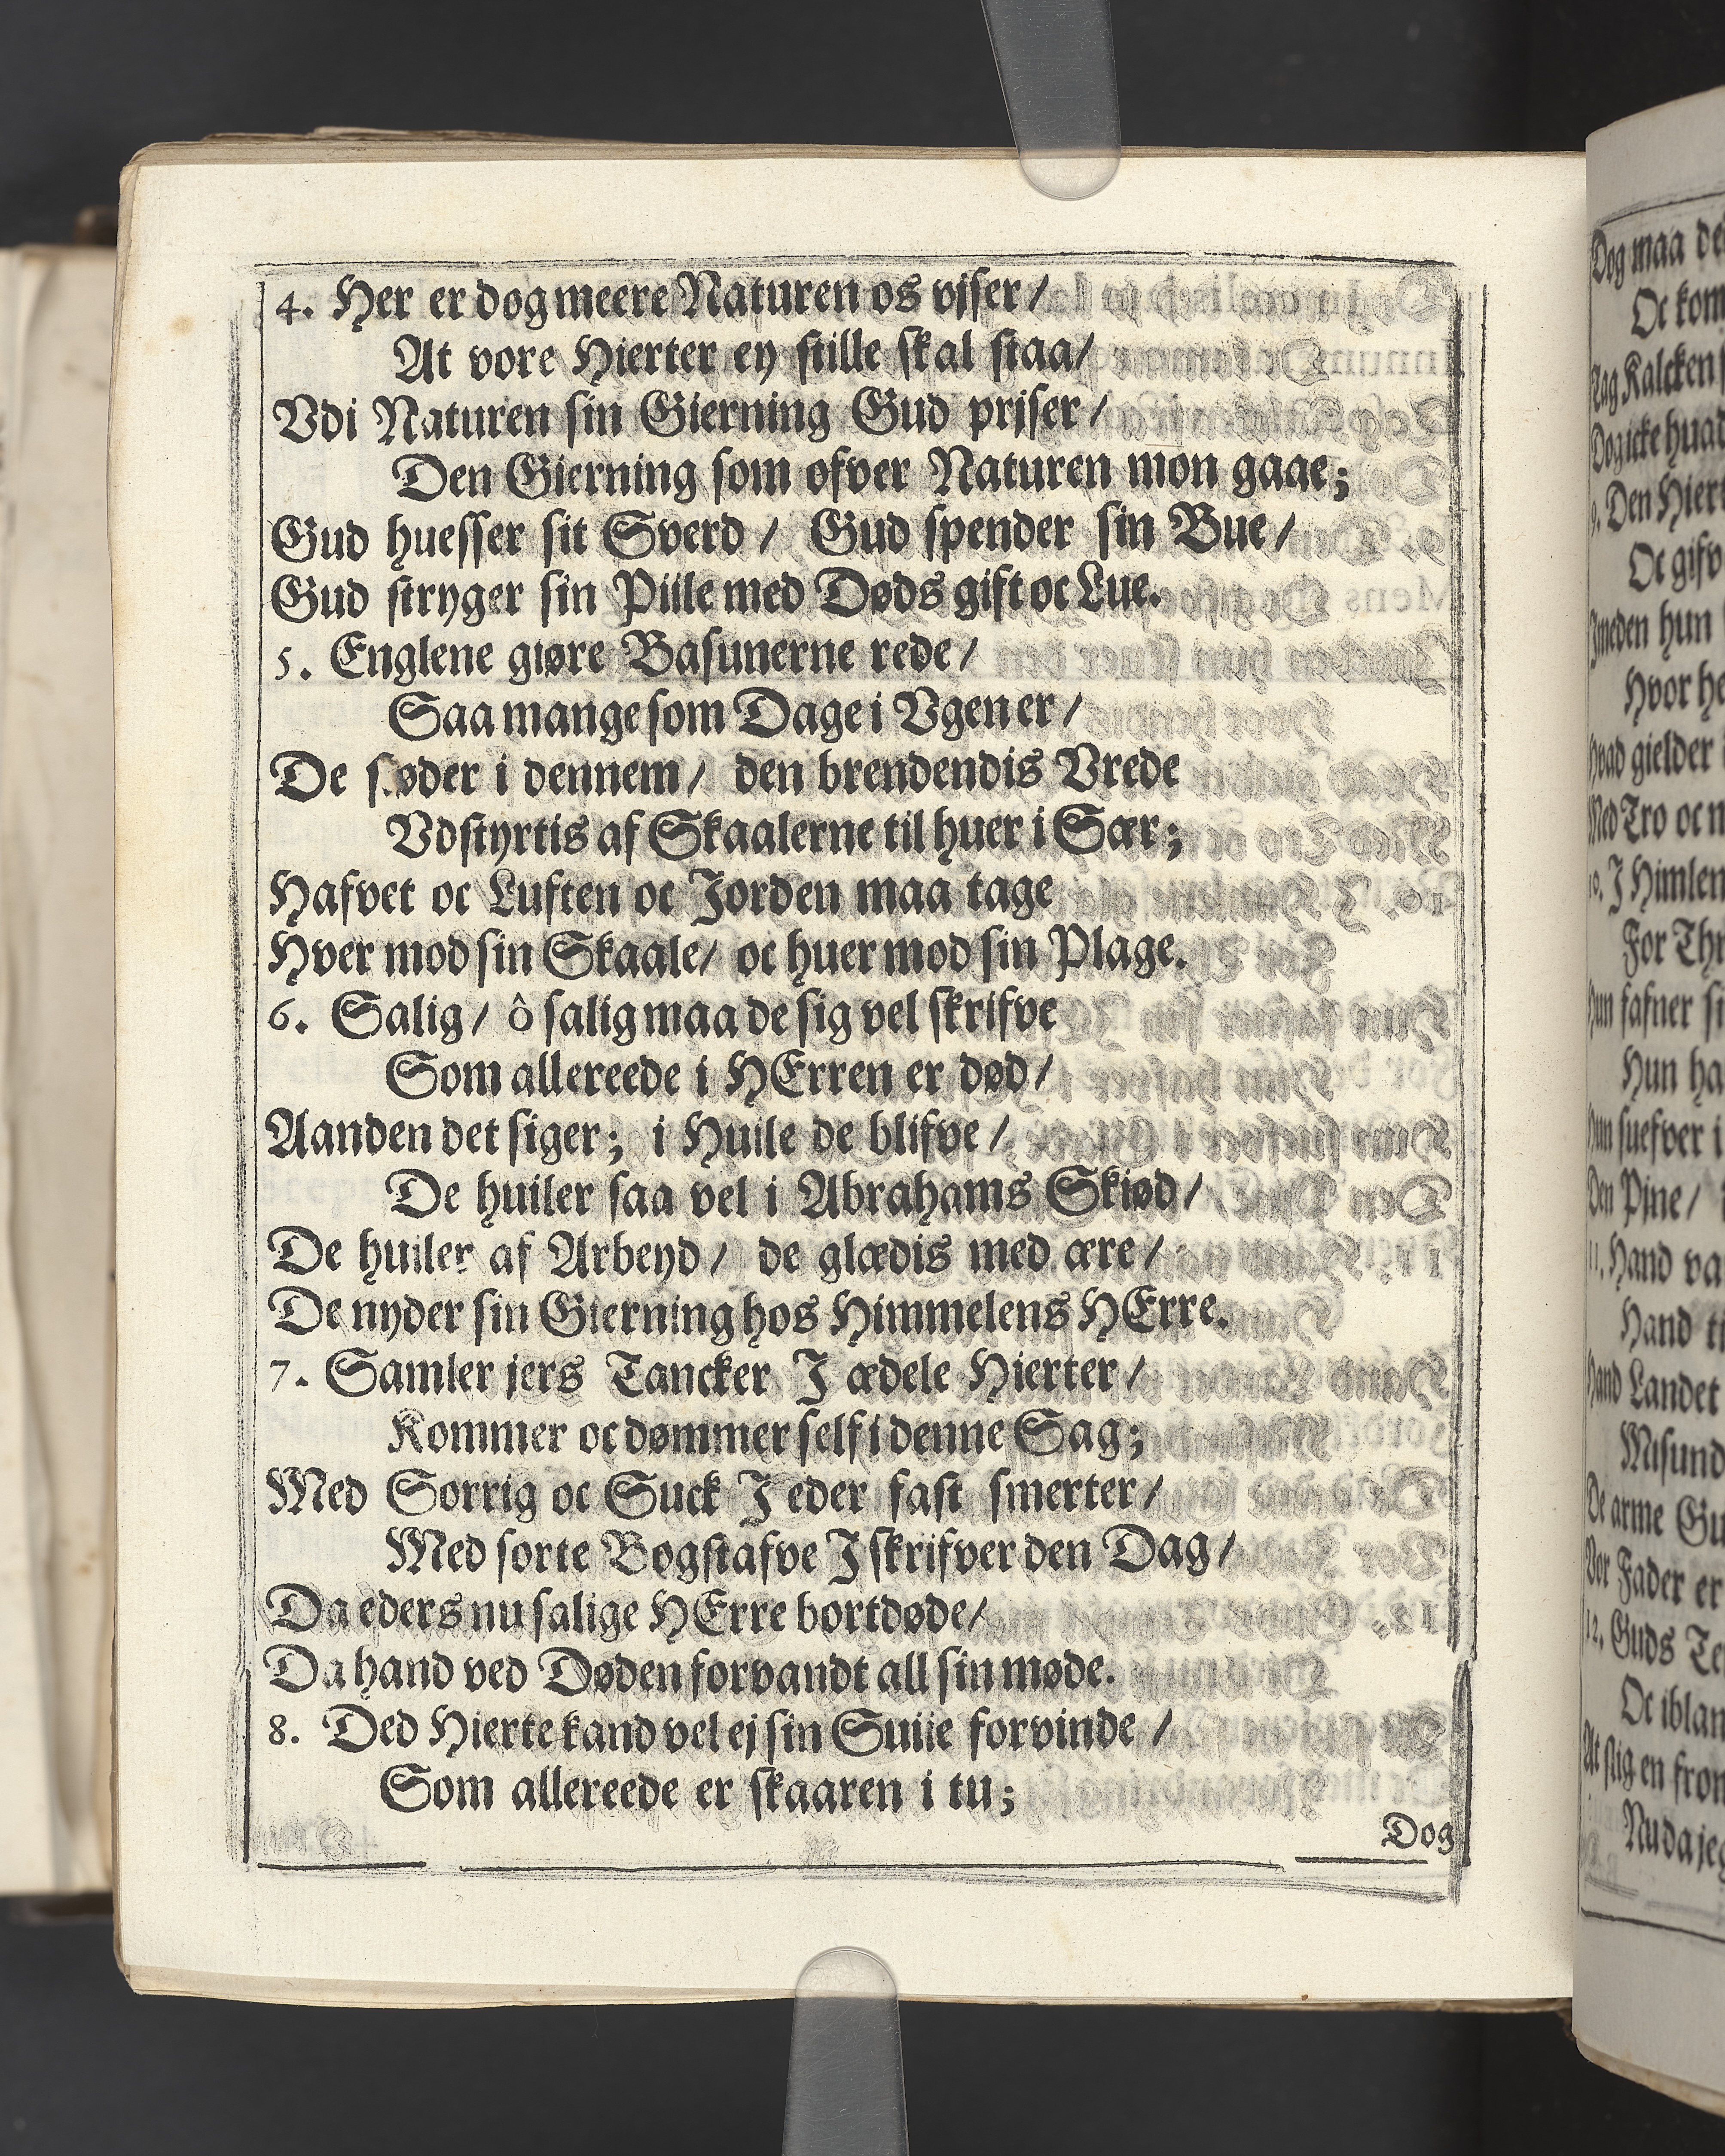 4. Her er dog meere Naturen os vjser /
At vore Hierter ey stille skal staa /
Vdi Naturen sin Gierning Gud prjser /
Den Gierning som ofver Naturen mon gaae;
Gud huesser sit Sverd / Gud spender sin Bue /
Gud stryger sin Piile med Døds gift oc Lue.
5. Englene giøre Basunerne rede /
Saa mange som Dage i Vgen er /
De støder i dennem / den brendendis Vrede
Vdstyrtis af Skaalerne til huer i Sær;
Hafvet oc Luften oc Jorden maa tage
Hver mod sin Skaale / oc huer mod sin Plage.
6. Salig / ô salig maa de sig vel skrifve
Som allereede i HErren er død /
Aanden det siger; i Huile de blifve /
De huiler saa vel i Abrahams Skiød /
De huiler af Arbeyd / de glædis med ære /
De nyder sin Gierning hos Himmelens HErre.
7. Samler jers Tancker I ædele Hierter /
Kommer oc dømmer self i denne Sag;
Med Sorrig oc Suck I eder fast smerter /
Med sorte Bogstafve I skrifver den Dag /
Da eders nu salige HErre bortdøde /
Da hand ved Døden forvandt all sin møde.
8. Ded Hierte kand vel ej sin Suiie forvinde /
Som allereede er skaaren i tu;
Dog
Dog maa
Oc
Tag Kalcken
Dog icke
9. Den
Oc
Imeden hun
Hvor
Hvad gielder
Med Tro oc
10. I Himlen
For
Hun fafner
Hun
Hun suefver i
Den Pjne /
11. Hand
Hand
Hand Landet
Misund
De arme
Vor Fader er
12. Guds
Oc
At slig en
Nu da jeg